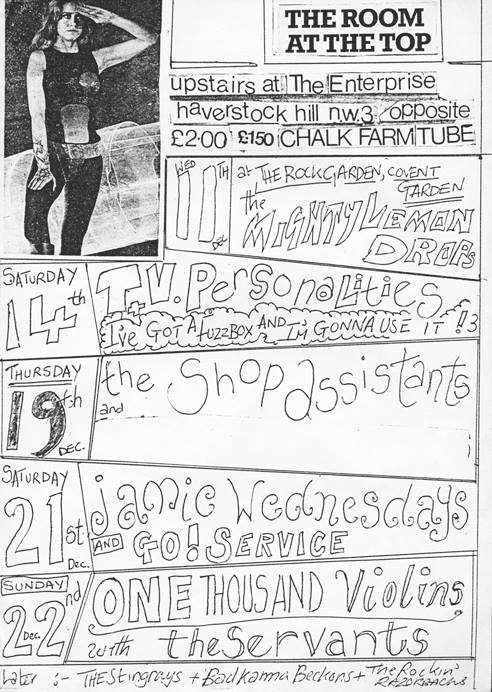 THE ROOM
AT THE TOP
upstairs at The Enterprise
haverstock hill n.w.3 opposite
£2·00 £1·50 CHALK FARM TUBE
WED 11TH DEC
at THE ROCK GARDEN, COVENT GARDEN
the
MIGHTY LEMON
DROPS
SATURDAY
14th
T.V. Personalities
+
I'VE GOT A fuzzBOX AND I'M GONNA USE IT !!3
THURSDAY
19th
DEC.
the Shop assistants
and
SATURDAY
21st
Dec.
jamie Wednesdays
AND GO! SERVICE
SUNDAY
22nd
Dec.
ONE THOUSAND Violins
with the Servants
Later :- THE Stingrays + Bad Karma Beckons + The Rockin' RAZORBACKS